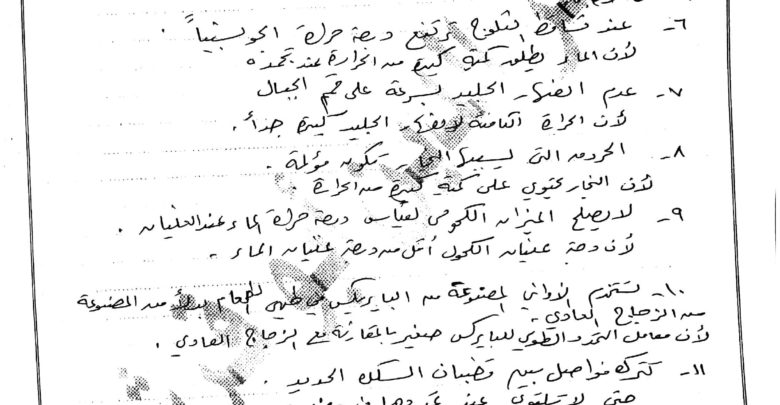 ٦- عند تساقط الثلوج ترتفع درجة حرارة الجو نسبياً .
لأن الماء يطلق كمية كبيرة من الحرارة عند تجمده
٧- عدم انصهار الجليد بسرعة على قمم الجبال
لأن الحرارة الكامنة لانصهار الجليد كبيرة جداً .
٨- الحروق التي يسببها البخار تكون مؤلمة .
لأن البخار يحتوي على كمية كبيرة من الحرارة .
٩- لا يصلح الميزان الكحولي لقياس درجة حرارة الماء عند الغليان .
لأن درجة غليان الكحول أقل من درجة غليان الماء .
١٠- تستخدم الأواني المصنوعة من البايركس في طهي الطعام بدلاً من المصنوعة
من الزجاج العادي .
لأن معامل التمدد الطولي للبايركس صغير بالمقارنة مع الزجاج العادي .
١١- تترك فواصل بين قضبان السكك الحديد .
حتى لا تلتوي عند